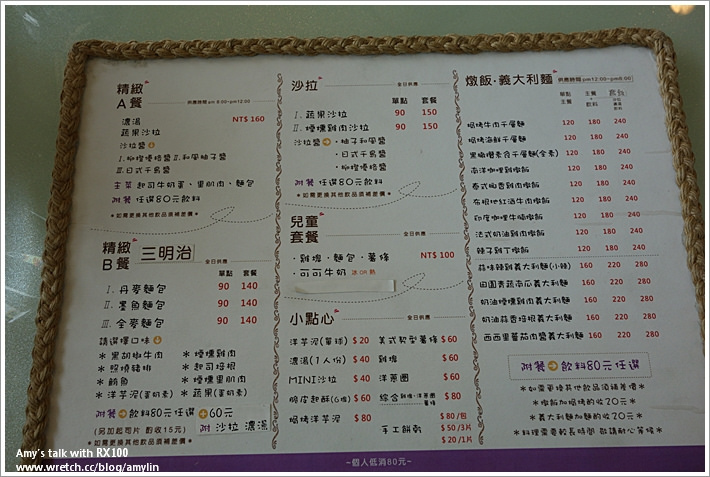 精緻
A餐
供應時間 pm 8:00~pm12:00
濃湯 NT$ 160
蔬果沙拉
沙拉醬
I.柳橙優格醬 II.和風柚子醬
III.日式千島醬
主菜 起司牛奶蛋、里肌肉、麵包
附餐 任選80元飲料
*如需更換其他飲品須補差價*
精緻
B餐 三明治
全日供應
單點 套餐
I.丹麥麵包 90 140
II.墨魚麵包 90 140
III.全麥麵包 90 140
請選擇口味
*黑胡椒牛肉 *煙燻雞肉
*照燒豬排 *起司培根
*鮪魚 *煙燻里肌肉
*洋芋泥(蛋奶素) *蔬果(蛋奶素)
附餐 飲料80元任選 60元
(另加起司片 酌收15元) 附 沙拉 濃湯
*如需更換其他飲品須補差價*
沙拉
全日供應
單點 套餐
I.蔬果沙拉 90 150
II.煙燻雞肉沙拉 90 150
沙拉醬 ·柚子和風醬
·日式千島醬
·柳橙優格醬
附餐 任選80元飲料
*如需更換其他飲品須補差價*
兒童
套餐
全日供應
·雞塊·麵包·薯條 NT$ 100
·可可牛奶 冰 OR 熱
小點心
全日供應
洋芋泥(單球) $ 20 美式契型薯條 $ 60
濃湯(1人份) $ 40 雞塊 $ 60
MINI沙拉 $ 40 洋蔥圈 $ 60
脆皮起酥(6個) $ 60 綜合 雞塊·洋蔥圈 薯條 $ 80
焗烤洋芋泥 $ 80
手工餅乾 $ 80/包
$ 50/3片
$ 20/1片
燉飯·義大利麵
供應時間 pm12:00~pm8:00
單點 主餐 套餐
主餐 + 飲料
焗烤牛肉千層麵 120 180 240
焗烤海鮮千層麵 120 180 240
黑橄欖素食千層麵(全素) 120 180 240
南洋咖哩雞燉飯 120 180 240
泰式椒香雞肉燉飯 120 180 240
布根地紅酒牛肉燉飯 120 180 240
印度咖哩牛腩燉飯 120 180 240
法式奶油雞肉燉飯 120 180 240
辣子雞丁燉飯 120 180 240
蒜味辣雞義大利麵(小辣) 160 220 280
田園青蔬南瓜義大利麵 160 220 280
奶油煙燻雞肉義大利麵 160 220 280
奶油蒜香培根義大利麵 160 220 280
西西里蕃茄肉醬義大利麵 160 220 280
附餐 飲料80元任選
*如需更換其他飲品須補差價*
*燉飯加焗烤酌收20元*
*義大利麵加麵酌收20元*
*料理需要較長時間 敬請耐心等候*
~個人低消80元~
Amy's talk with RX100
www.wretch.cc/blog/amylin